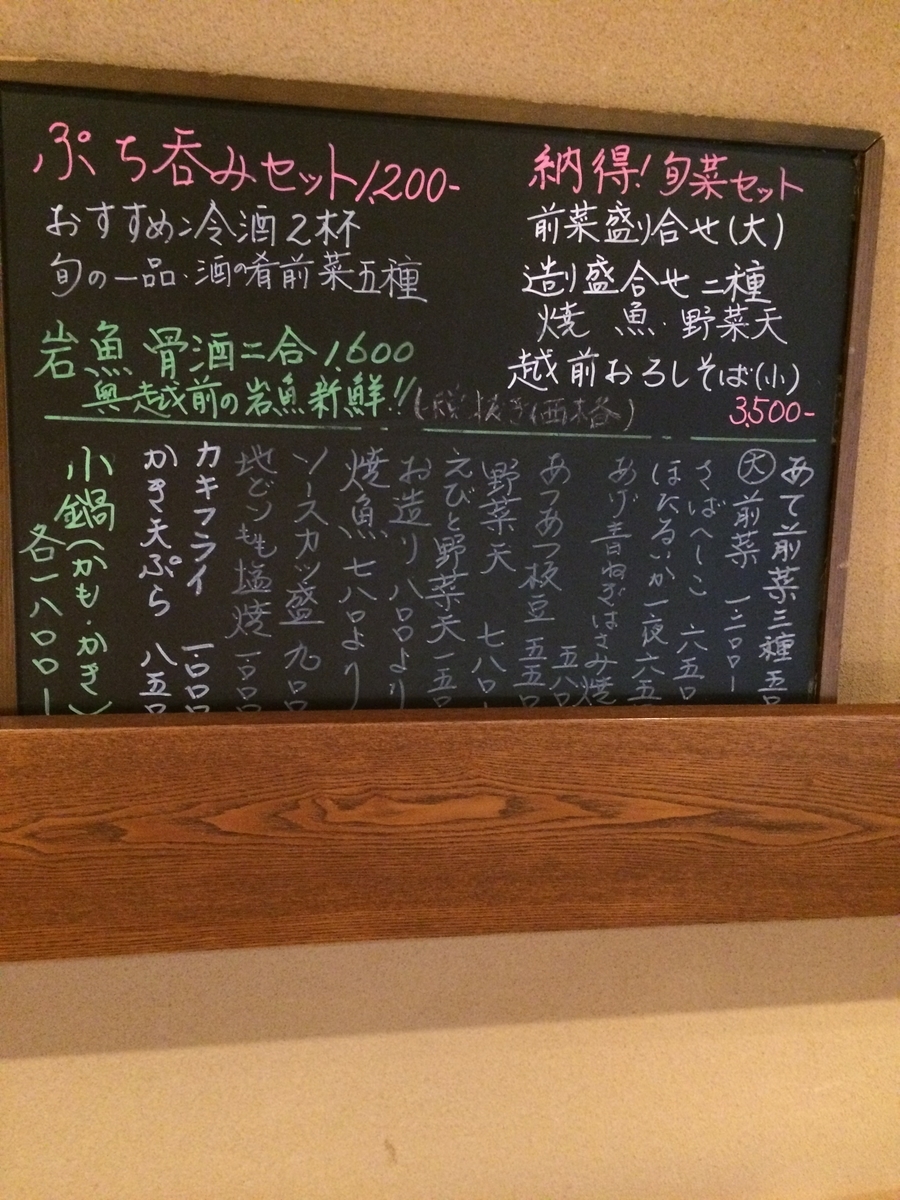 ぷち呑みセット1,200-
おすすめ冷酒2杯
旬の一品・酒の肴前菜五種
岩魚骨酒二合1,600
奥越前の岩魚新鮮!!
(税抜き価格)
納得!旬菜セット
前菜盛り合せ(大)
造り盛合せ二種
焼魚・野菜天
越前おろしそば(小)
3,500-
あて前菜三種五
大前菜一二〇〇ー
さばへしこ六五〇
ほたるいか一夜六五
あげ青ねぎはさみ焼五八〇
あつあつ板豆五五〇
野菜天七八〇
えびと野菜天一五〇
お造り八〇〇より
焼魚七八〇より
ソースカツ盛九〇
地どりもも塩焼一〇〇
カキフライ一〇〇
かき天ぷら八五
小鍋(かも・かき)
各一八〇〇ー